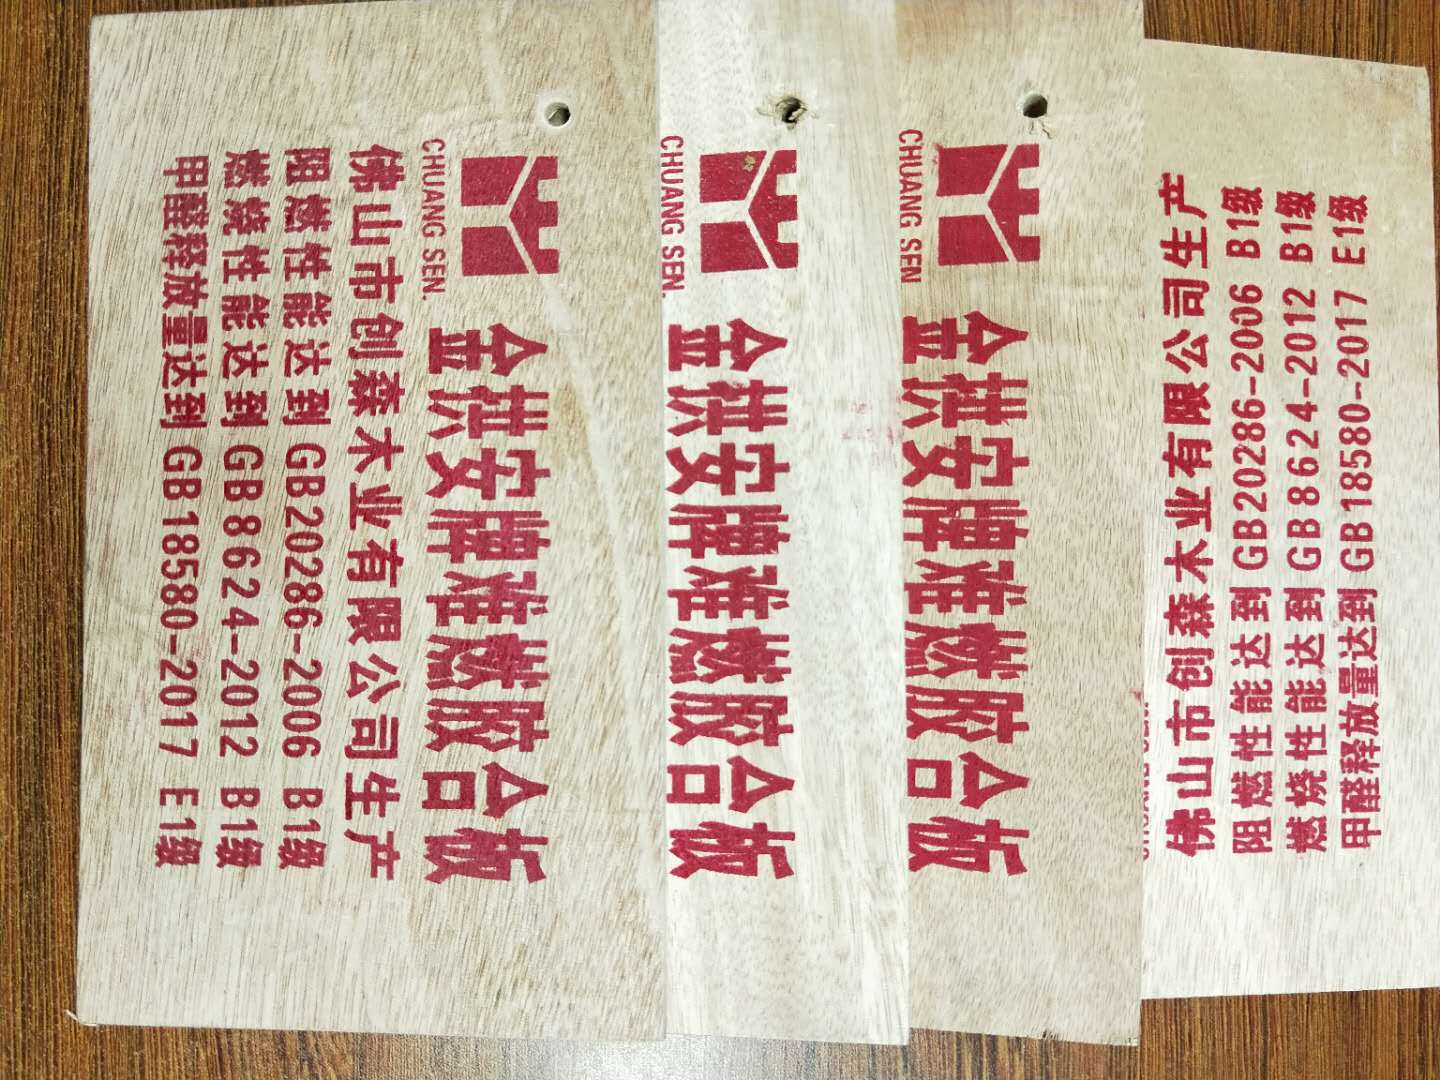 CHUANG SEN.
金洪安牌难燃胶合板
佛山市创森木业有限公司生产
阻燃性能达到 GB20286-2006 B1级
燃烧性能达到 GB8624-2012 B1级
甲醛释放量达到 GB18580-2017 E1级
CHUANG SEN.
金洪安牌难燃胶合板
CHUANG SEN
金洪安牌难燃胶合板
佛山市创森木业有限公司生产
阻燃性能达到 GB20286-2006 B1级
燃烧性能达到 GB8624-2012 B1级
甲醛释放量达到 GB18580-2017 E1级